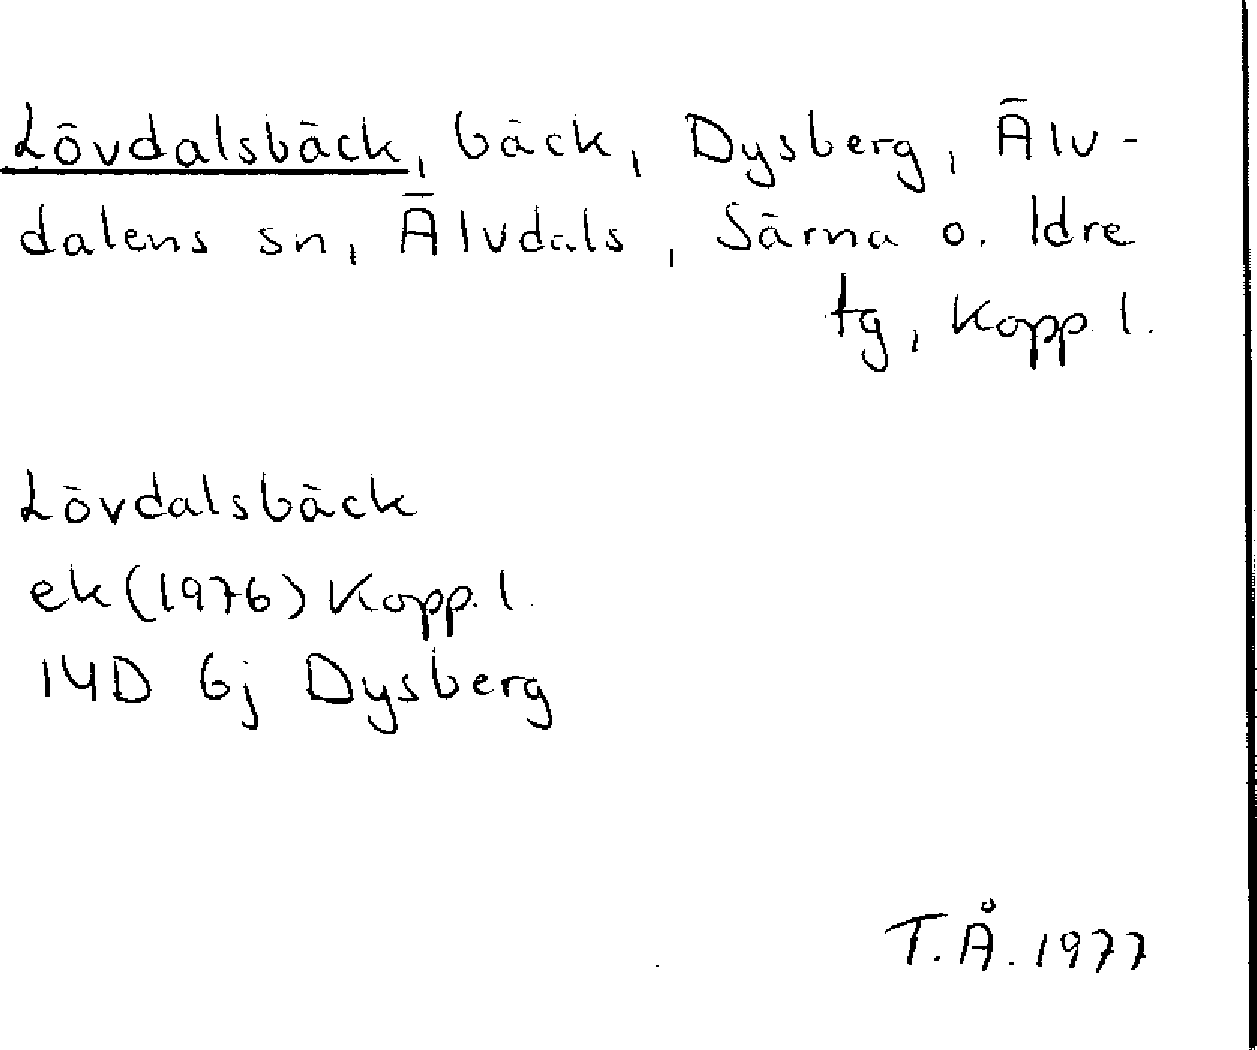 Lövdalsbäck, bäck, Dysberg, Älv-
dalens sn, Älvdals, Särna o. Idre
tg, Kopp l.
Lövdalsbäck
ek (1976) Kopp. l.
14D 6j Dysberg
T.Å. 1977